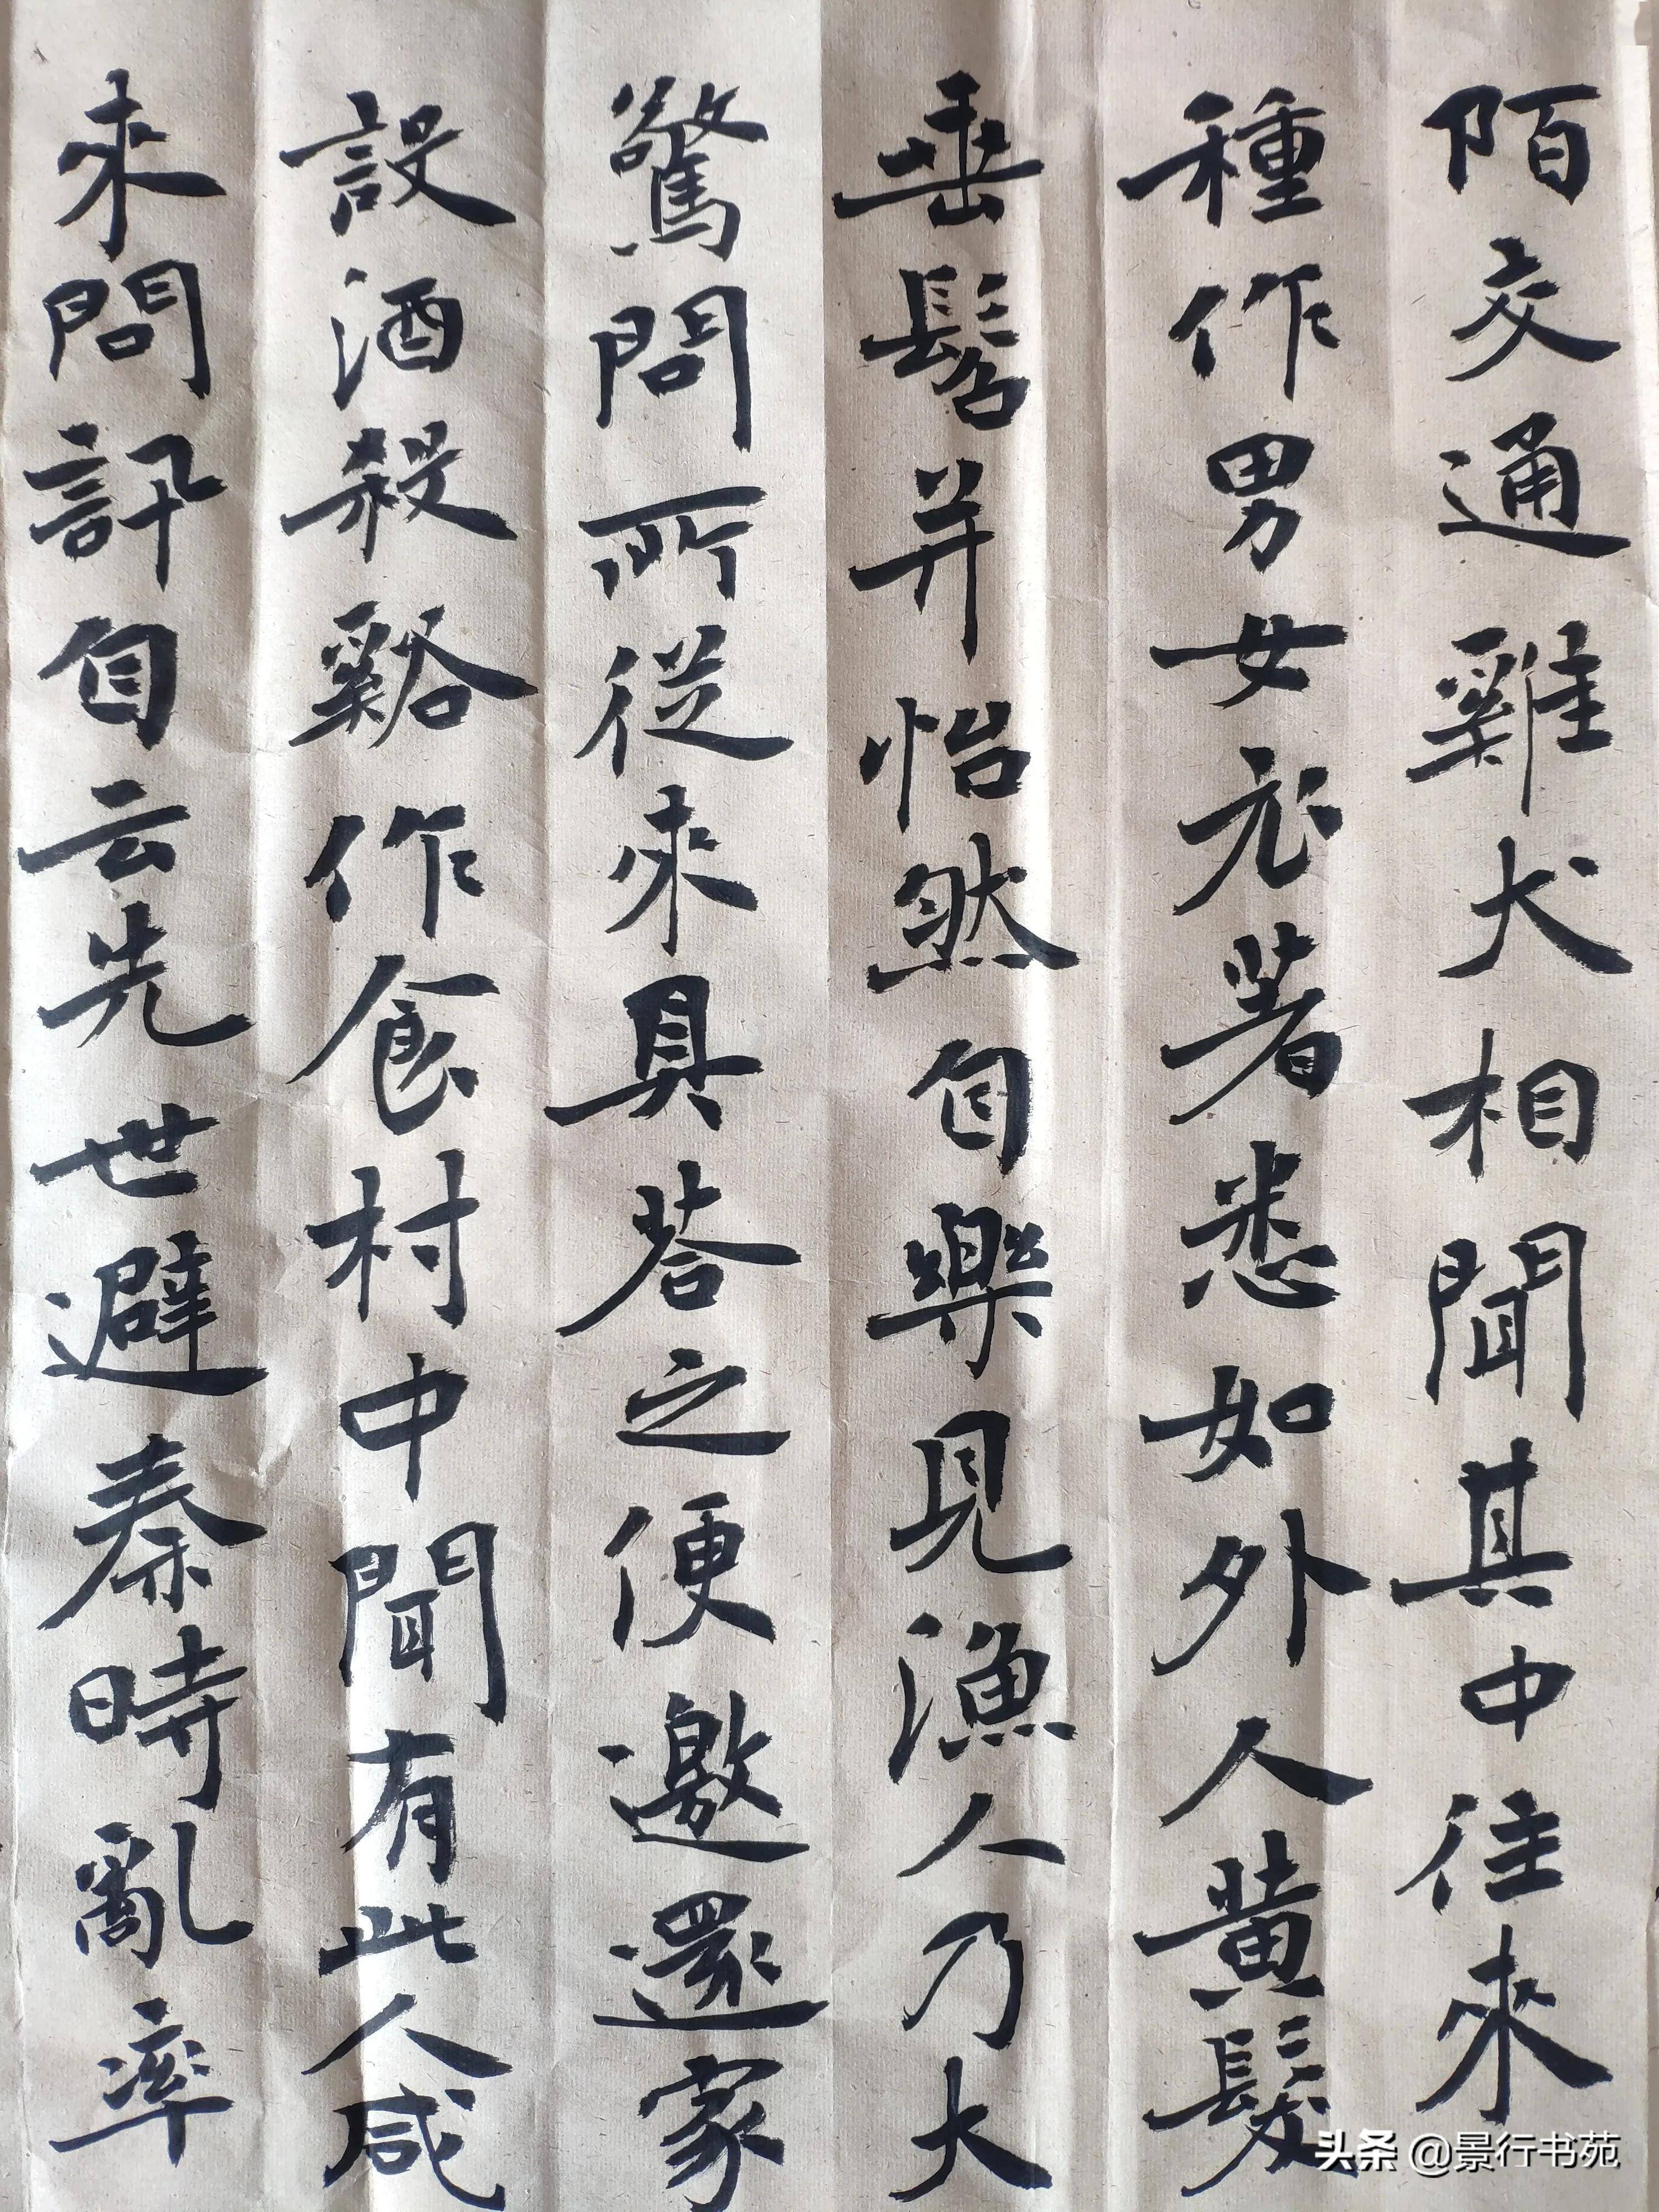 陌交通雞犬相聞其中往來
種作男女衣著悉如外人黃髮
垂髫并怡然自樂見漁人乃大
驚問所從來具荅之便邀還家
設酒殺谿作食村中聞有此人咸
來問訊自云先世避秦時亂率
头条 @景行书苑